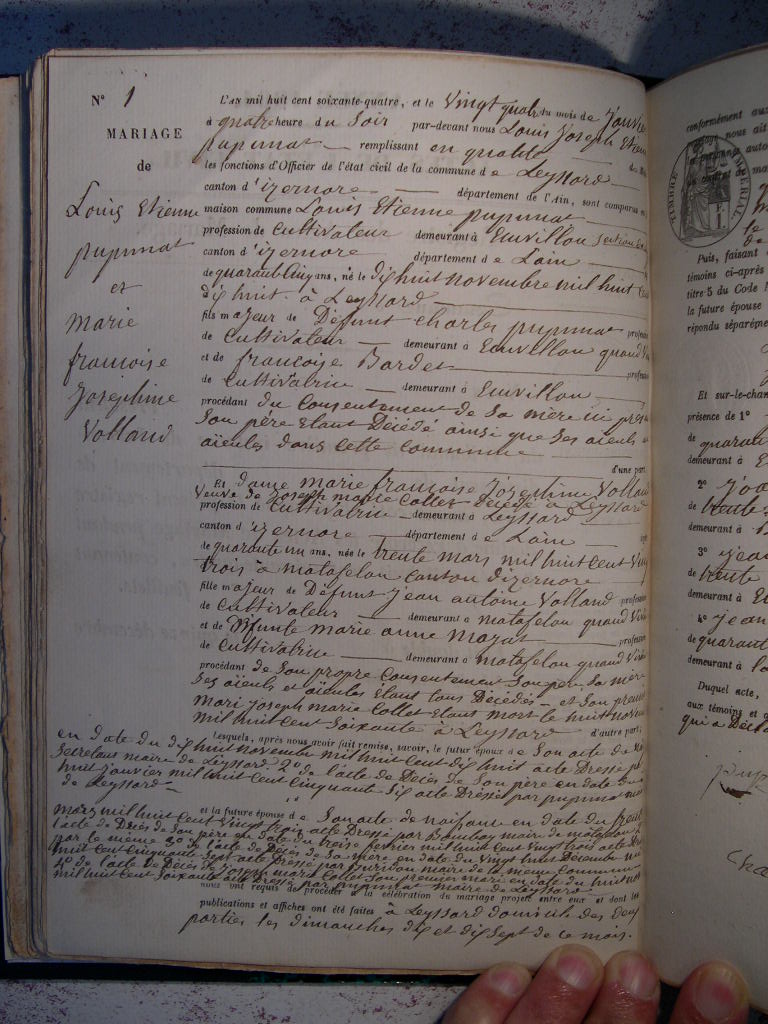 N° 1
MARIAGE
de
Louis Etienne
pupunat
et
Marie
francoise
Josephine
Volland
L'An mil huit cent soixante-quatre, et le Vingt quatre du mois de Janvier
à quatre heure du Soir par-devant nous Louis Joseph Etienne
pupunat remplissant en qualité de
les fonctions d'Officier de l'état civil de la commune de Leyssard
canton d'izernore département de l'Ain, sont comparus en
maison commune Louis Etienne pupunat
profession de Cultivateur demeurant à Emvillou Section
canton d'izernore département de Lain
de quarante Cinq ans, né le dix huit novembre mil huit Cent
dix huit à Leyssard
fils majeur de Défunt charles pupunat profession
de Cultivateur demeurant à Emvillou quand
et de francoise Bardet profession
de Cultivatrice demeurant à Emvillou
procédant du Consentement de Sa mère ici
Son père étant Décédé ainsi que Ses aieuls et
aieules dans Cette Commune
d'une part.
Et dame marie francoise Josephine Volland
Veuve de Joseph marie Collet Décédé à Leyssard
profession de Cultivatrice demeurant à Leyssard
canton d'izernore département de Lain
de quarante un ans, née le trente mars mil huit Cent Vingt
trois à matafelon Canton dizernore
fille majeur de Défunt Jean antoine Volland profession
de Cultivateur demeurant à matafelon quand
et de Défunte marie anne Mozat profession
de Cultivatrice demeurant à matafelon quand
procédant de Son propre Consentement Son père Sa mère
Ses aieuls et aieules étant tous Décédés et Son premier
mari Joseph marie Collet étant mort le huit novembre
mil huit Cent Soixante à Leyssard d'autre part;
Lesquels, après nous avoir fait remise, savoir, le futur époux de Son acte de
en date du dix huit novembre mil huit Cent dix huit acte Dressé par
Secretans maire de Leyssard 2° de l'acte de Décès de Son père en date du
huit janvier mil huit Cent Cinquante Six acte Dressé par pupunat
de Leyssard
et la future épouse de Son acte de naissance en date du trente
mars mil huit Cent Vingt trois acte Dressé par maire de matafelon
l'acte de Décès de Son père en date du treize fevrier mil huit Cent Vingt trois acte
par le même 3° de l'acte de Décès de Sa mère en date du Vingt Décembre
huit Cent Cinquante Sept acte Dressé par maire de la même Commune
4° de l'acte de Décès de Joseph marie Collet Son premier mari en date du huit
mil huit Cent Soixante acte Dressé par pupunat maire de Leyssard
nous ont requis de procéder à la célébration du mariage projeté entre eux et dont les
publications et affiches ont été faites à Leyssard domicile des deux
parties les dimanches dix et dix Sept de Ce mois.
TIMBRE IMPERIAL
conformément aux
Puis, faisant
témoins ci-après
titre 5 du Code
la future épouse
répondu séparément
Et sur-le-champ
présence de 1°
de quarante
demeurant à
2°
de trente
demeurant à
3° Jean
de trente
demeurant à
4° Jean
de quarante
demeurant à
Duquel acte,
aux témoins et
qui a